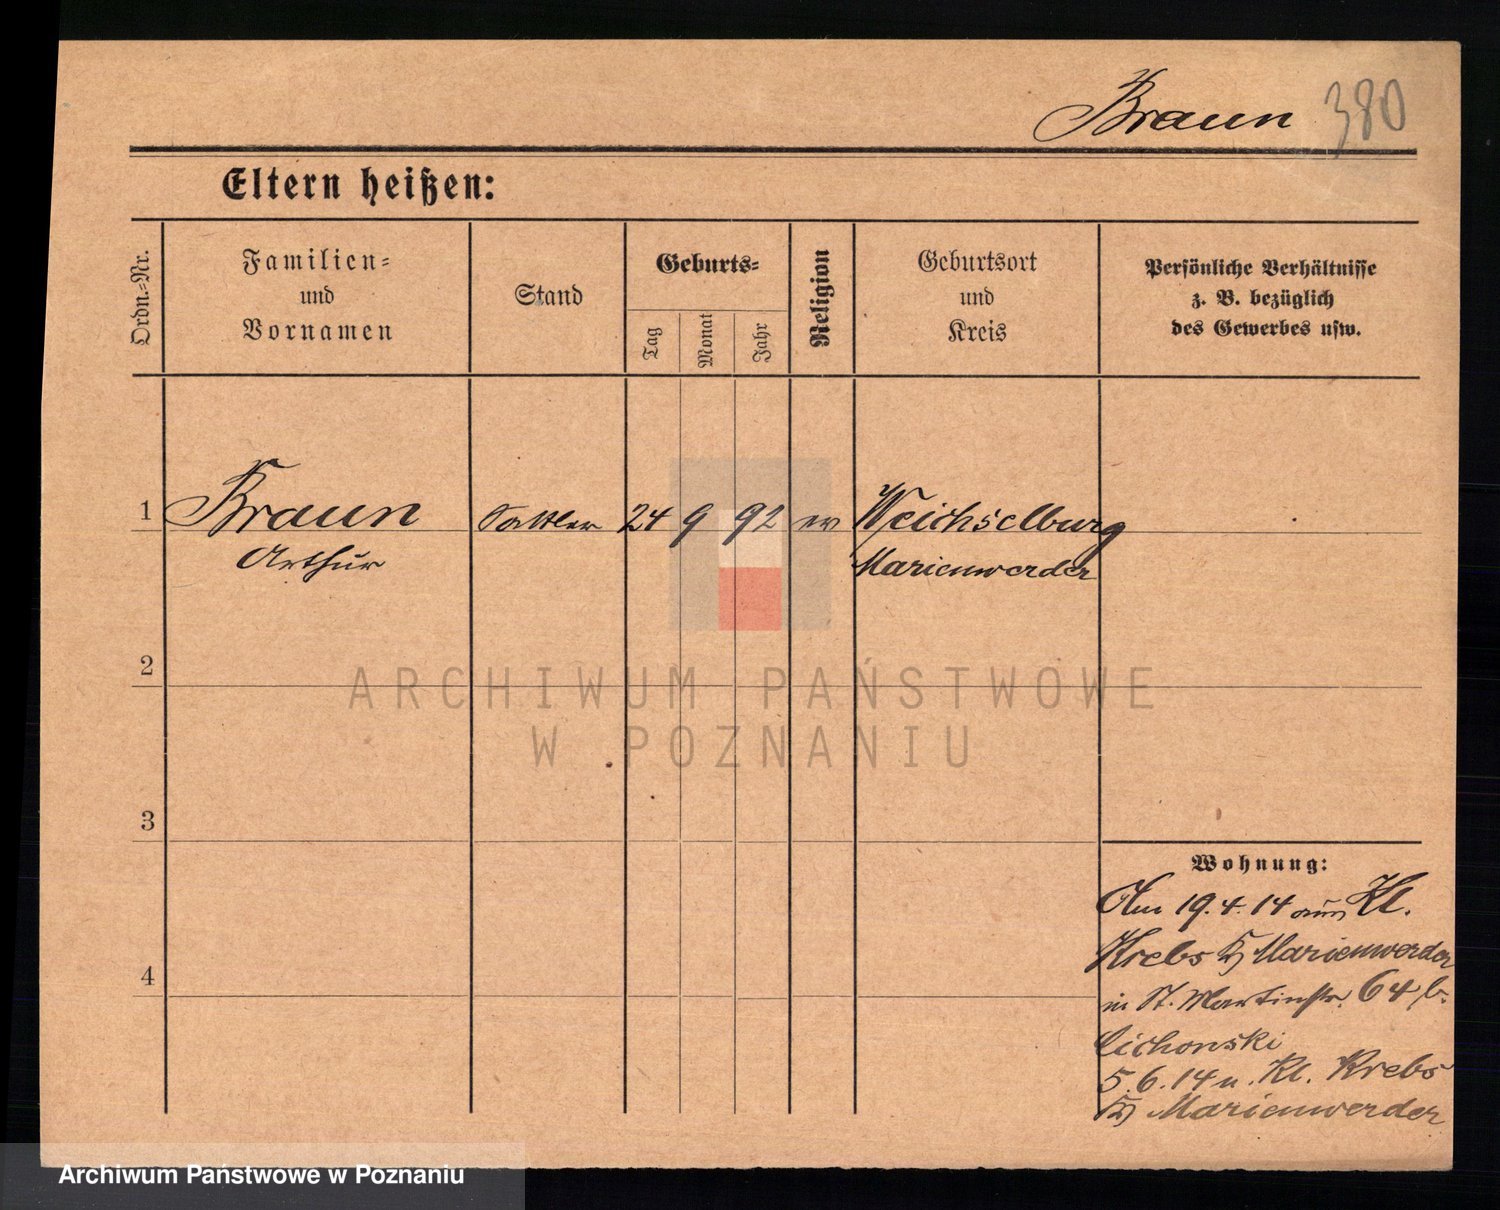 Braun 380
Eltern heißen:
Ordn.-Nr.
Familien-
und
Vornamen
Stand
Geburts-
Tag
Monat
Jahr
Religion
Geburtsort
und
Kreis
Persönliche Verhältnisse
z. B. bezüglich
des Gewerbes usw.
1 Braun Sattler 24 9 92 ev Weichselburg
Arthur Marienwerder
2
ARCHIWUM PAŃSTWOWE
W POZNANIU
3
Wohnung:
Am 19.4.14 aus Kl.
Krebs Kr Marienwerder
4
in St. Martinstr. 64 b.
Cichonski
5.6.14 n. Kl. Krebs
Kr Marienwerder
Archiwum Państwowe w Poznaniu